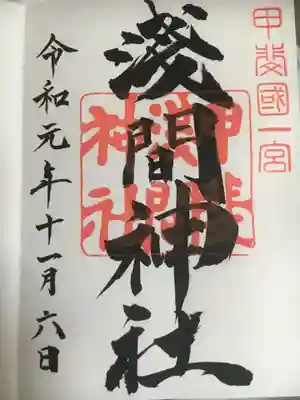 甲斐國一宮
浅間神社
甲斐
浅間
神社
令和元年十一月六日